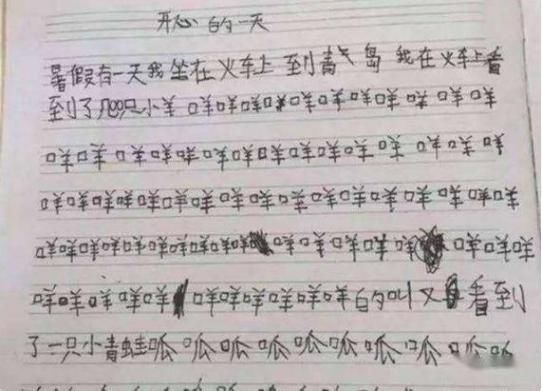 开心的一天
暑假有一天我坐在火车上到青气岛我在火车上看
到了几只小羊咩咩咩咩咩咩咩咩咩咩咩咩
咩咩咩咩咩咩咩咩咩咩咩咩咩咩咩咩咩
咩咩咩咩咩咩咩咩咩咩咩咩咩咩咩咩咩咩
咩咩咩咩咩咩咩咩咩咩咩咩咩咩咩咩咩
咩咩咩咩咩咩咩咩咩咩咩的叫又看到
了一只小青蛙呱呱呱呱呱呱呱呱呱呱